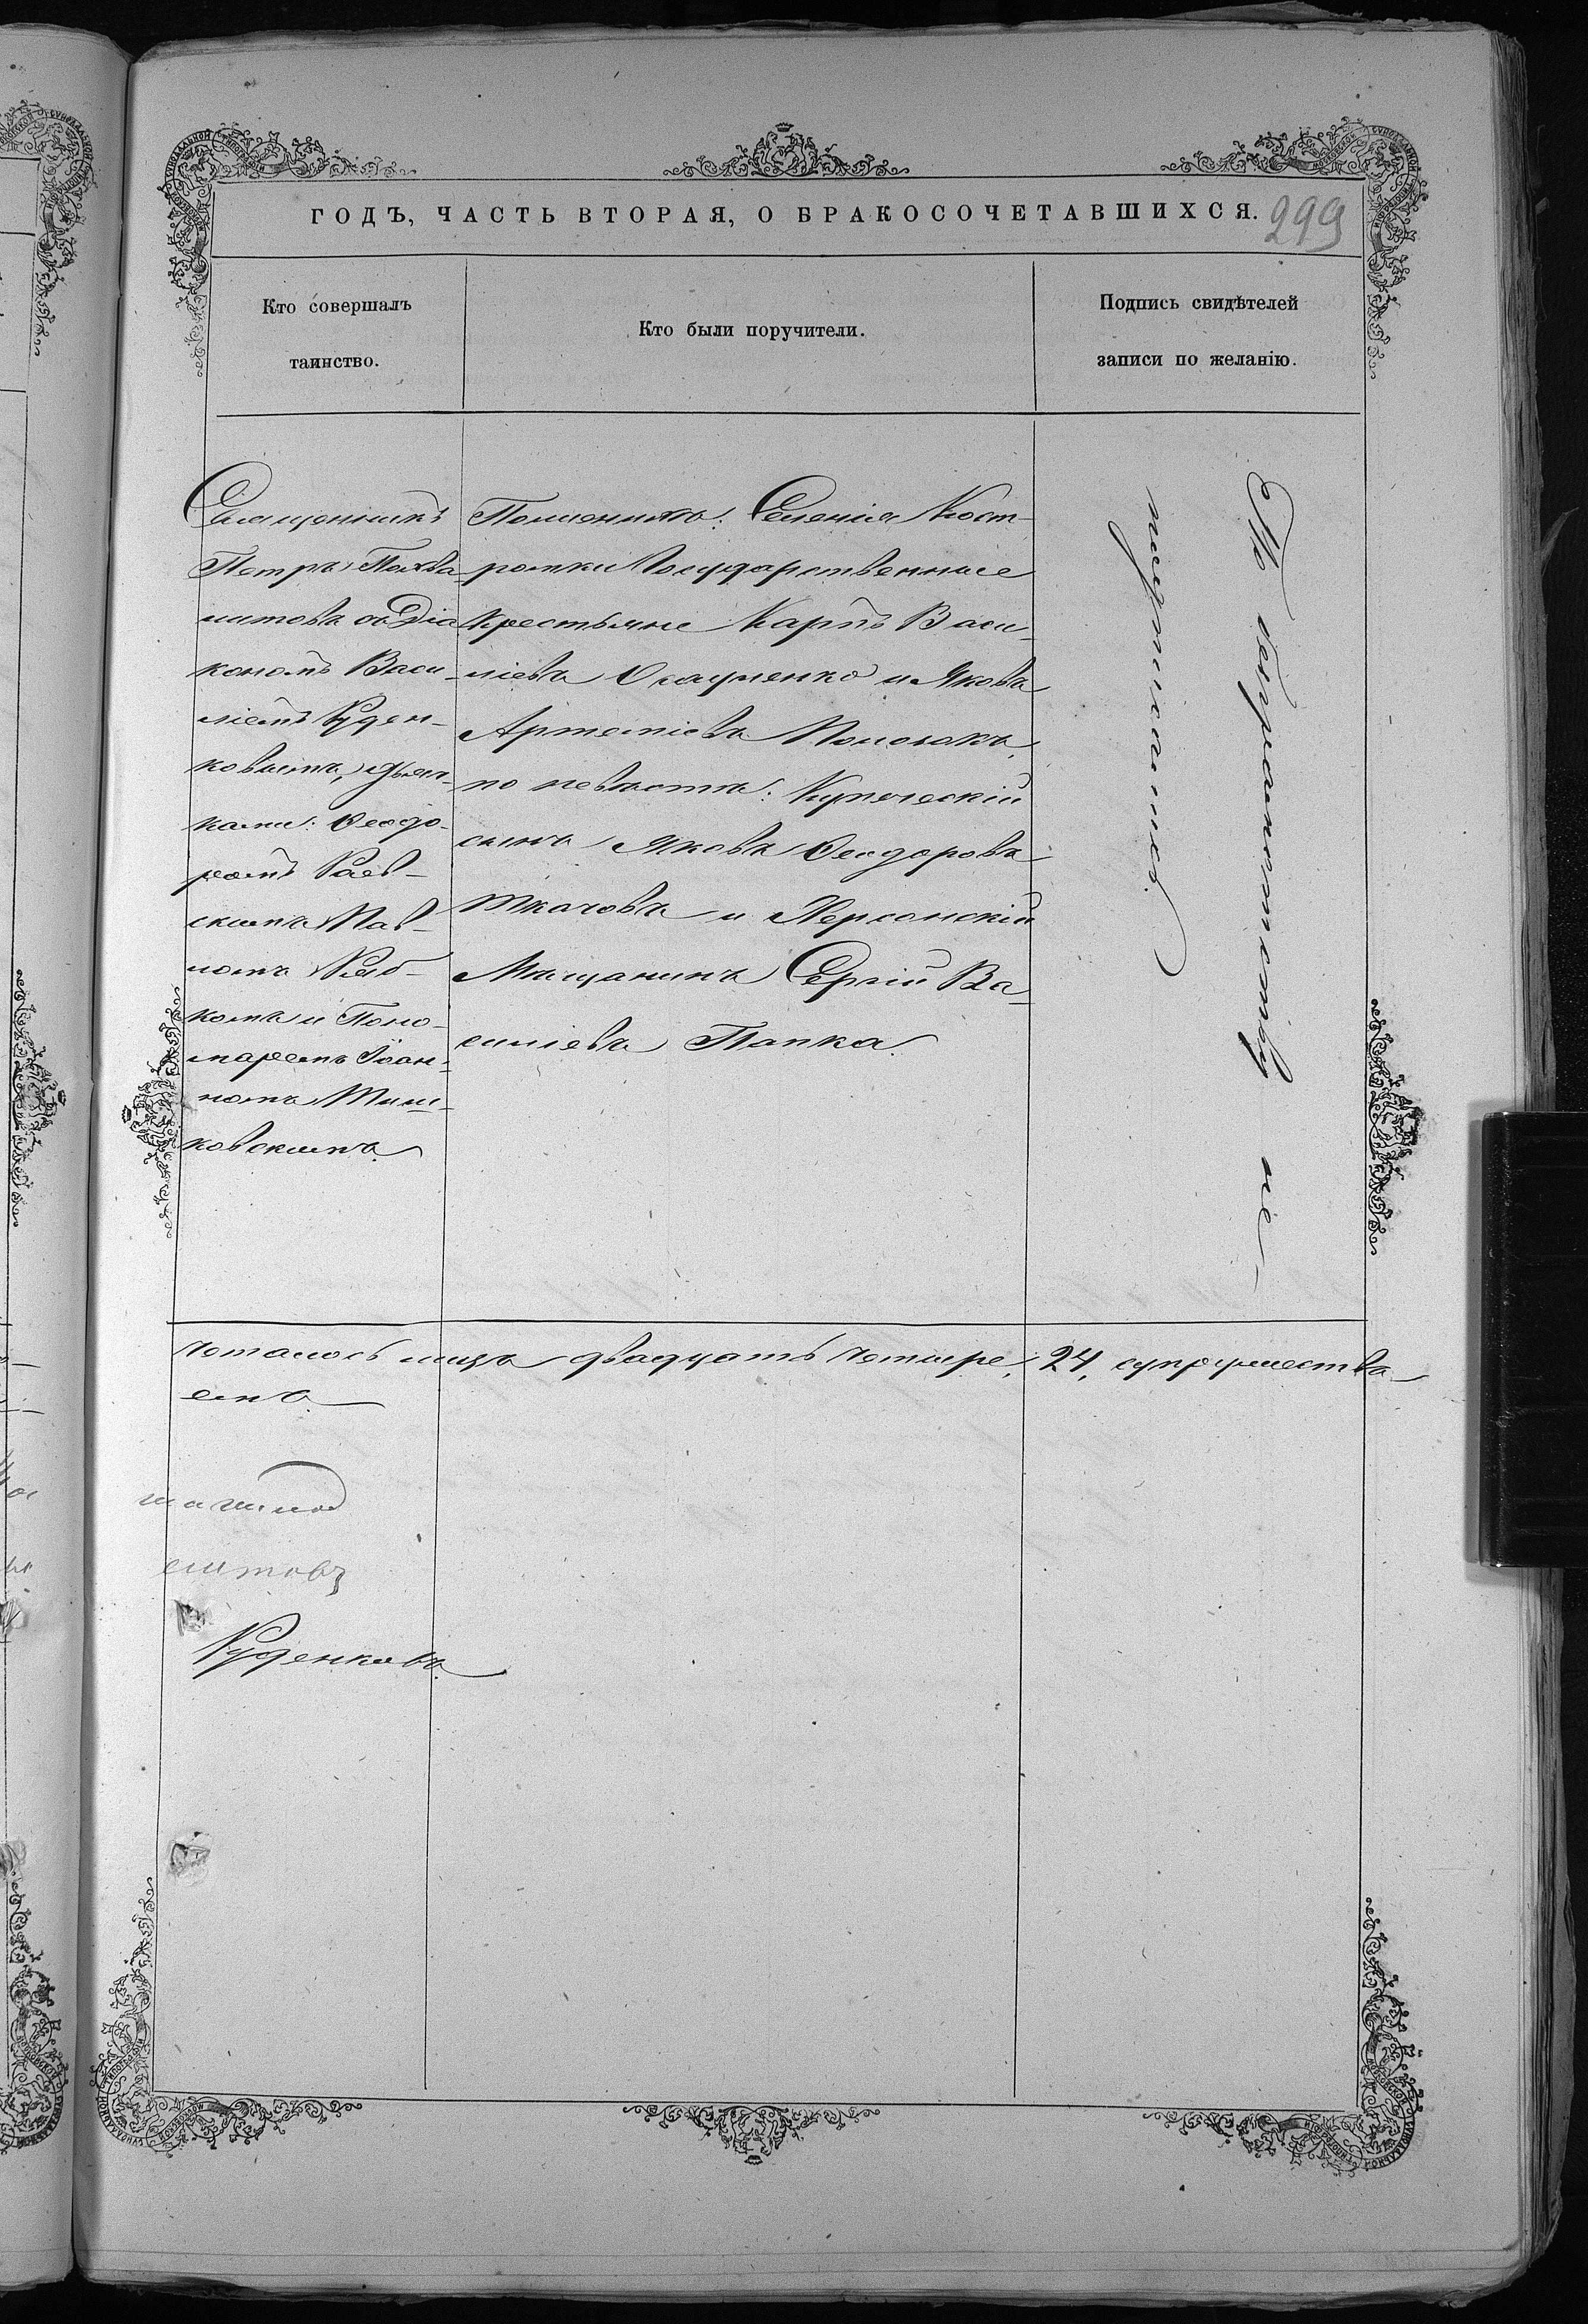 ГОДЪ, ЧАСТЬ ВТОРАЯ, О БРАКОСОЧЕТАВШИХСЯ. 299
Кто совершалъ
таинство.
Кто были поручители.
Подпись свидѣтелей
записи по желанію.
Священникъ
Петръ Похва
литовъ съ Діа
кономъ Васи-
ліемъ Руден-
ковымъ, дьяч-
ками: Ѳеодо-
ромъ Раев-
скимъ Пав-
ломъ Ряб-
комъ и Поно-
маремъ Іоан-
номъ Тиш-
ковскимъ.
По женихѣ: Селенія Кост-
ромки Государственные
крестьяне Карпъ Васи-
ліевъ и Яковъ
Артеміевъ
по невѣстѣ: Купеческій
сынъ Яковъ Ѳеодоровъ
Ткачовъ и Херсонскій
Мѣщанинъ Сергій Ва-
силіевъ Папка.
Къ рукоприкладству не
приглашались.
четалось лицъ двадцать четыре, 24, супружества
емъ
Руденковъ.